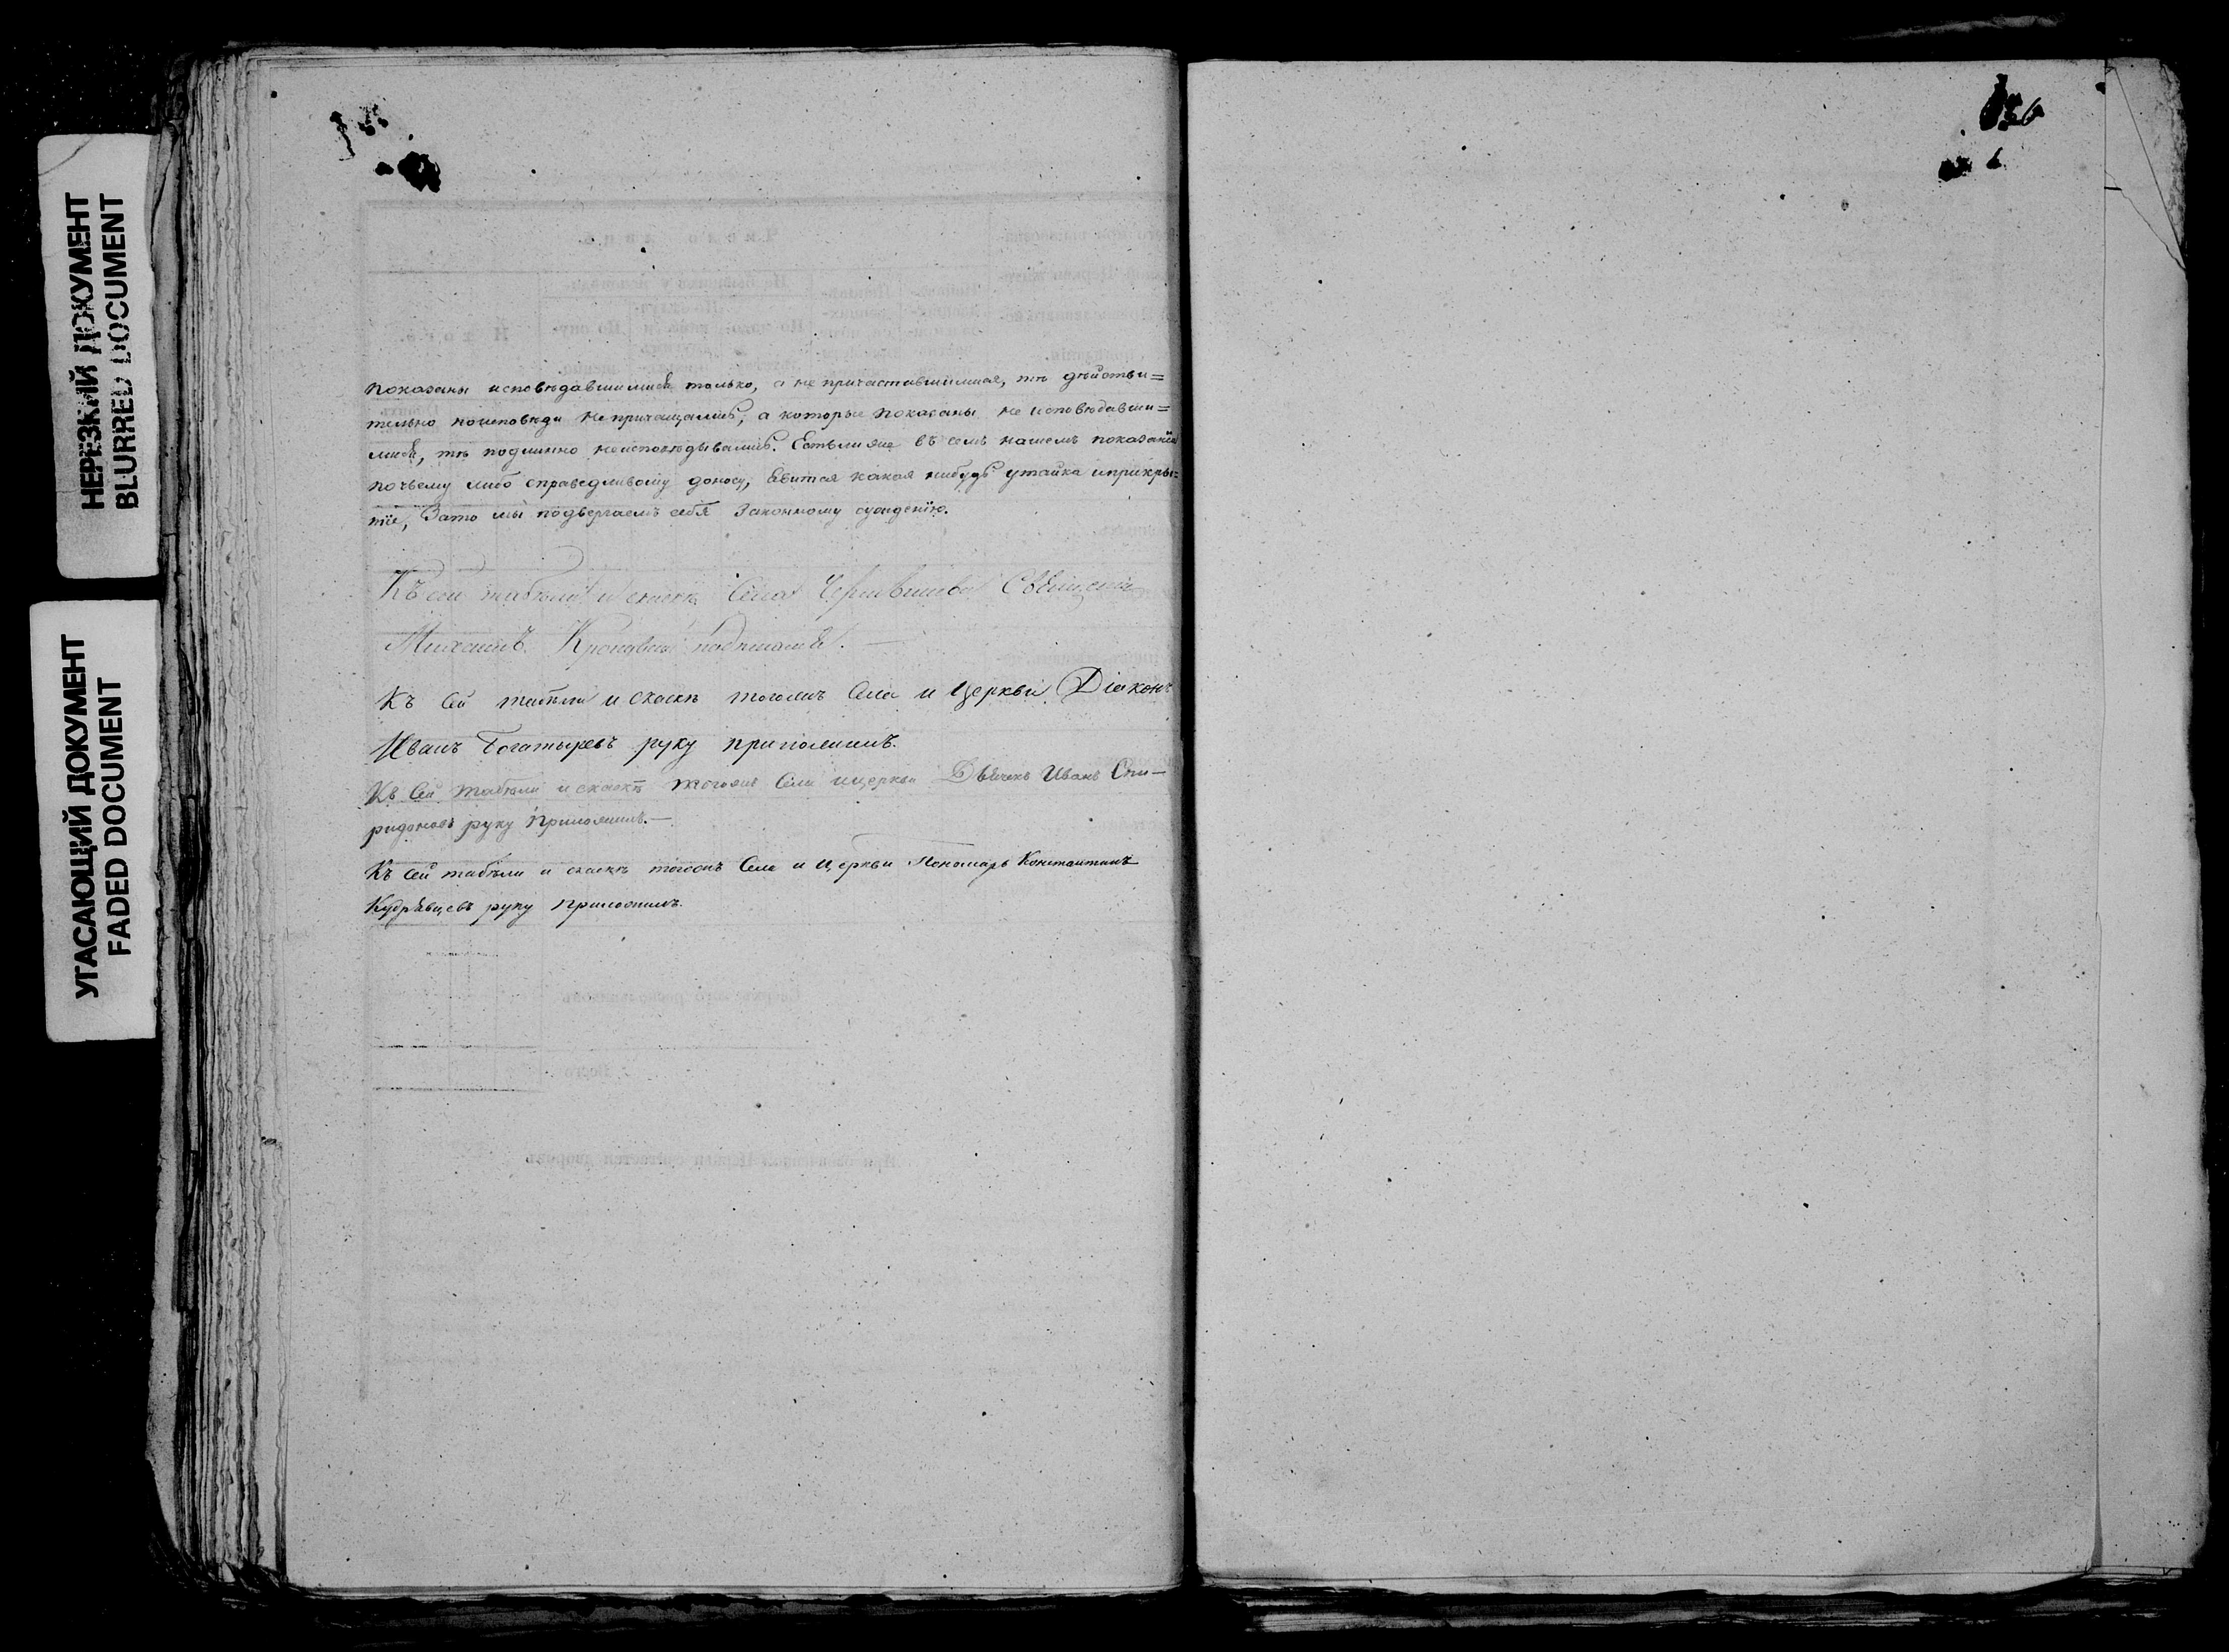 НЕРЕЗКИЙ ДОКУМЕНТ
BLURRED DOCUMENT
УГАСАЮЩИЙ ДОКУМЕНТ
FADED DOCUMENT
показаны исповѣдавшимися только, а не причастившимися, тѣ дѣйстви=
тельно поисповѣди непричащались, а которые показаны не исповѣдавши=
мися, тѣ подлинно неисповѣдывались. Естьлиже въ семъ нашемъ показанїи
почьему либо справедливому доносу, явится какая нибудь утайка иприкры=
тїе, Зато мы подвергаемъ себя Законному сужденїю.
Къ сей табели и сказкѣ Села Священникъ
Михаилъ подписался.
Къ сей табели и скаскѣ тогожъ Села и Церкви Дїаконъ
Иванъ Богатыревъ руку приложилъ.
Къ Сей табели и скаскѣ тогожъ Села ицеркви Дьячекъ Иванъ Спи-
ридоновъ руку Приложилъ.
Къ сей табели и скаскѣ тогожъ Села и Церкви Пономарь Константинъ
Кудрявцевъ руку приложилъ.